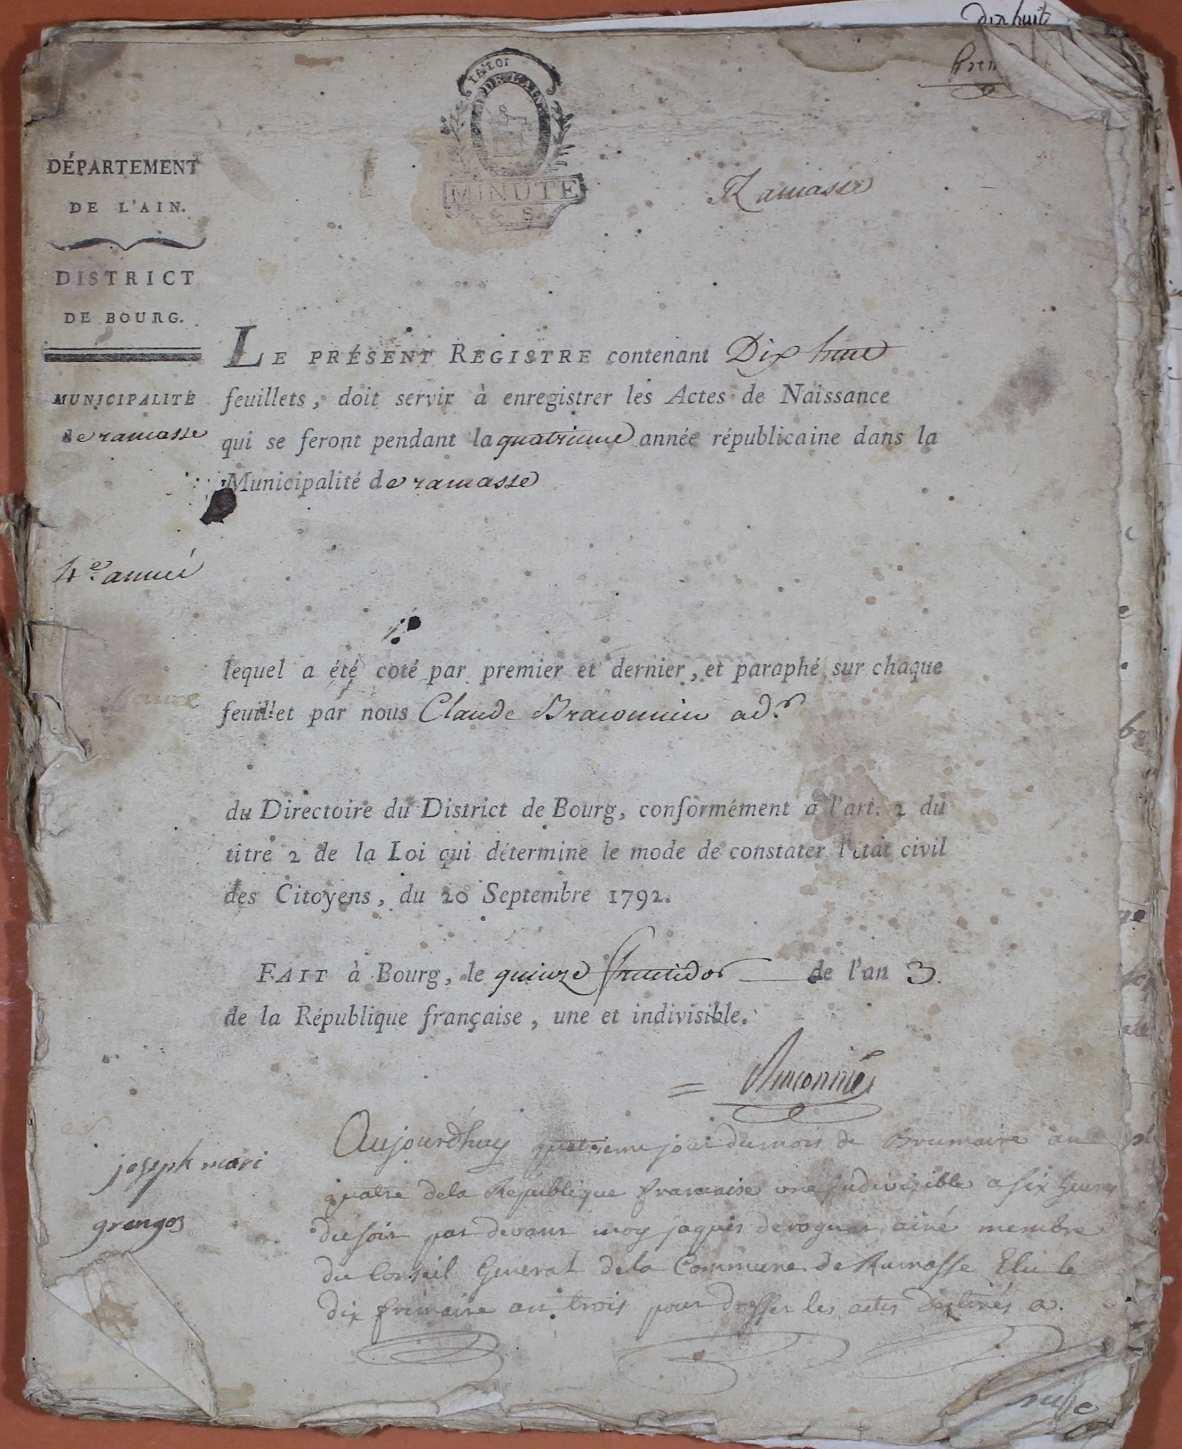 dix huit
Prem
LA LOI
DE L'AIN
MINUTE
Ramasse
DÉPARTEMENT
DE L'AIN.
DISTRICT
DE BOURG.
MUNICIPALITÉ
de ramasse
LE PRÉSENT REGISTRE contenant Dix huit
feuillets, doit servir à enregistrer les Actes de Naissance
qui se feront pendant la quatrieme année républicaine dans la
Municipalité de ramasse
4e. année
lequel a été coté par premier et dernier, et paraphé sur chaque
feuillet par nous Claude Braconnier adr
du Directoire du District de Bourg, conformément à l'art. 2 du
titre 2 de la Loi qui détermine le mode de constater l'état civil
des Citoyens, du 20 Septembre 1792.
FAIT à Bourg, le quinze fructidor de l'an 3.
de la République française, une et indivisible.
= Braconnier
joseph mari
grangos
Aujourdhuy quatrieme jour du mois de Brumaire an
quatre dela Republique francaise une indivisible a six heures
du soir par devant moy jaques devoguas ainé membre
du Conseil General dela Commune de Ramasse Elu le
dix frimaire an trois pour dresser les actes destinés a